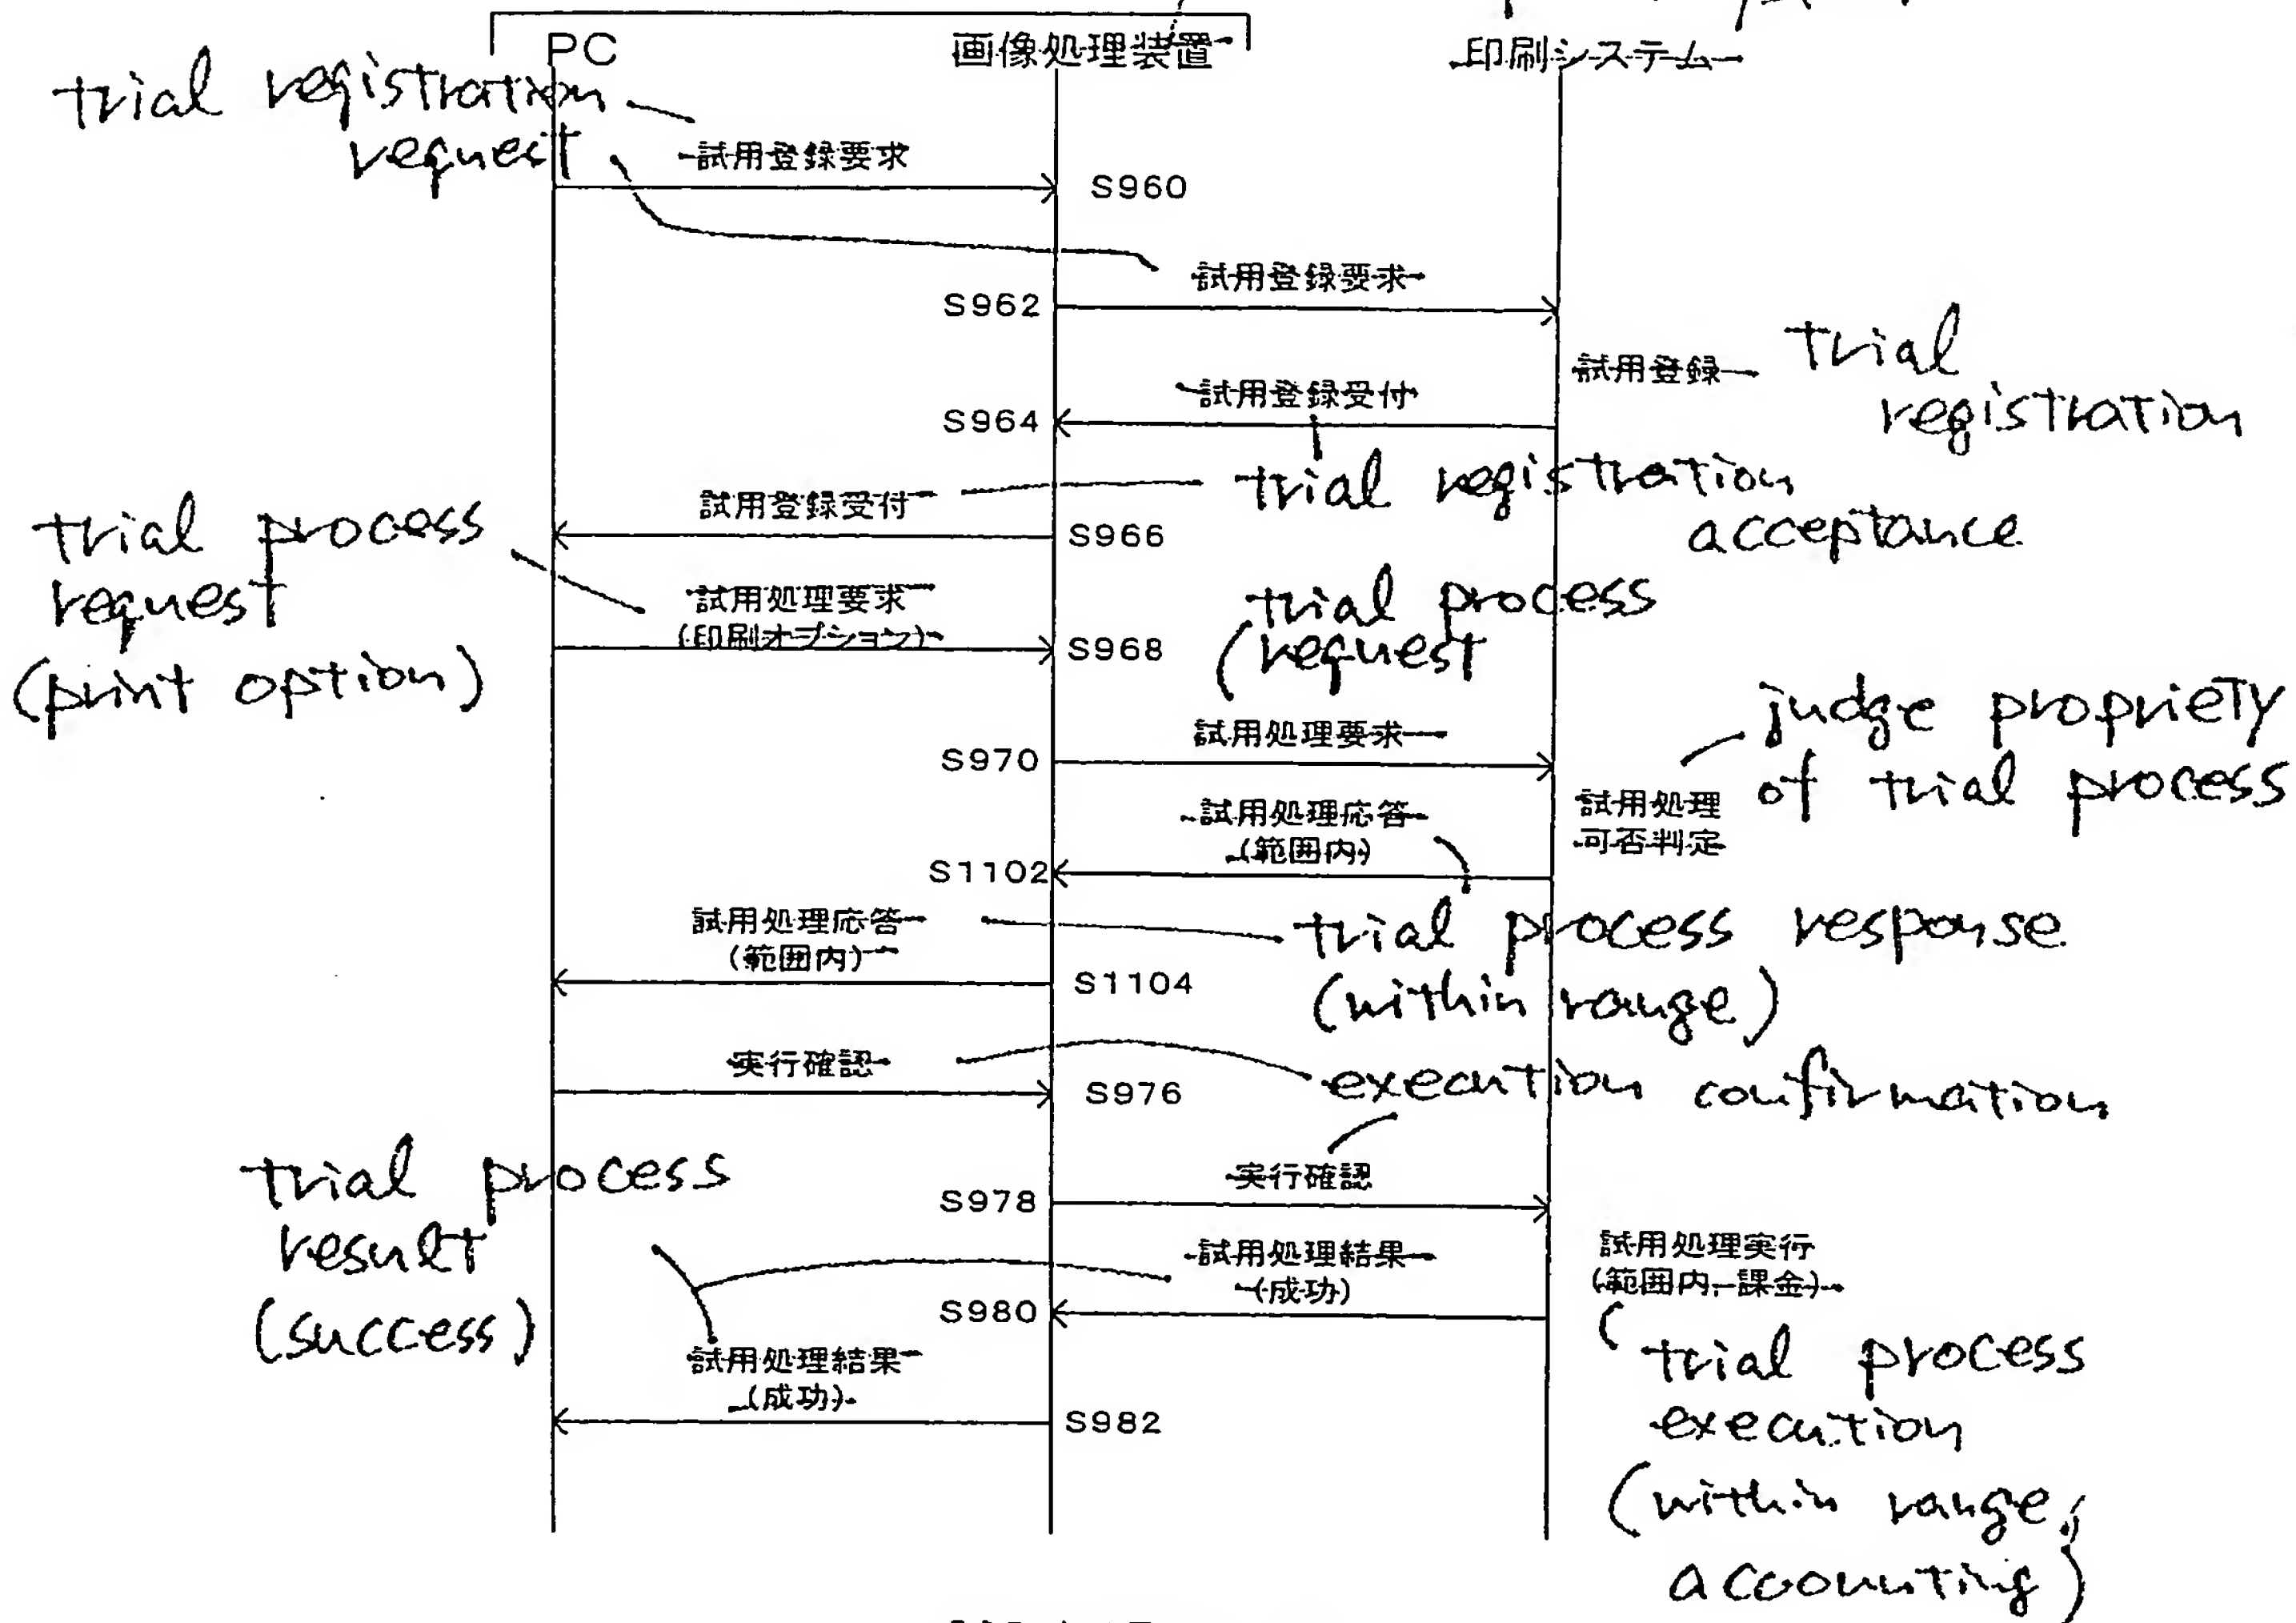 PC
画像処理装置
印刷システム
trial registration
request
試用登録要求
S960
試用登録要求
S962
試用登録
trial
registration
試用登録受付
S964
trial registration
acceptance
試用登録受付
S966
trial process
request
(print option)
試用処理要求
(印刷オプション)
S968
trial process
request
試用処理要求
S970
judge propriety
of trial process
試用処理
可否判定
試用処理応答
(範囲内)
S1102
試用処理応答
(範囲内)
S1104
trial process response
(within range)
実行確認
S976
execution confirmation
実行確認
S978
trial process
result
(success)
試用処理結果
(成功)
S980
試用処理実行
(範囲内、課金)
試用処理結果
(成功)
S982
trial process
execution
(within range,
accounting)